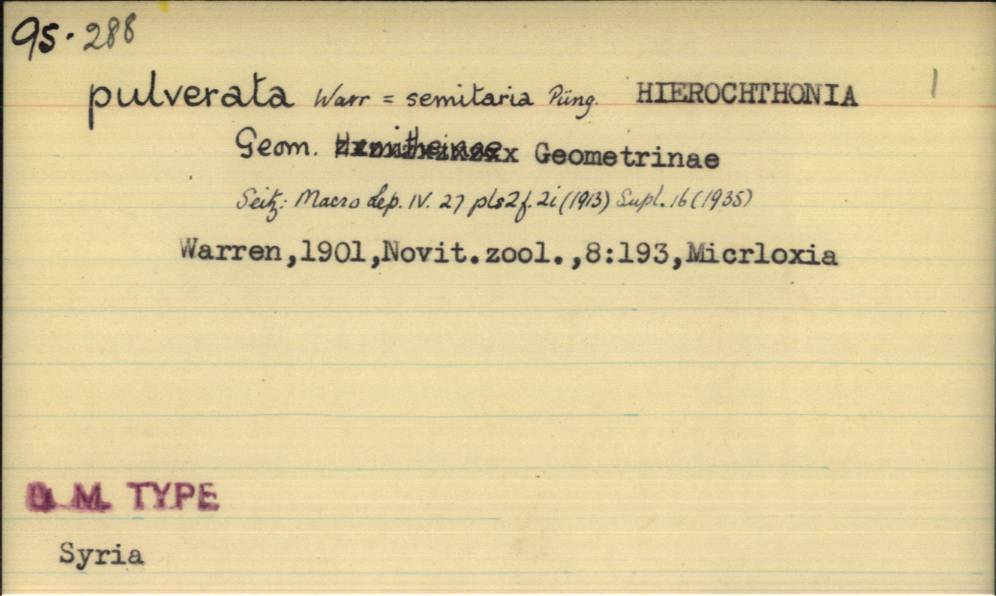 95.288
pulverata Warr = semitaria Püng. HIEROCHTHONIA 1
Geom. Geometrinae
Seitz: Macro Lep. IV. 27 pls 2f. 2i (1913) Supl. 16 (1935)
Warren,1901,Novit.zool.,8:193,Micrloxia
M. TYPE
Syria